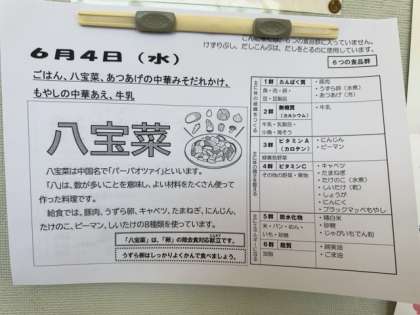 食品群に入っていません。
けずりぶし、だしこんぶは、だしをとるのに使用しています。
6月4日（水）
6つの食品群
ごはん、八宝菜、あつあげの中華みそだれかけ、
もやしの中華あえ、牛乳
八宝菜
八宝菜は中国名で「パーパオツァイ」といいます。
「八」は、数が多いことを意味し、よい材料をたくさん使って
作った料理です。
給食では、豚肉、うずら卵、キャベツ、たまねぎ、にんじん、
たけのこ、ピーマン、しいたけの8種類を使っています。
「八宝菜」は、「卵」の除去食対応献立です。
うずら卵はしっかりよくかんで食べましょう。
1群 たんぱく質
魚・肉・卵・
豆・豆製品
・豚肉
・うずら卵（水煮）
・あつあげ（冷）
2群 無機質
（カルシウム）
牛乳・乳製品・
小魚・海そう
・牛乳
3群 ビタミンA
（カロテン）
緑黄色野菜
・にんじん
・ピーマン
4群 ビタミンC
その他の野菜・果物
・キャベツ
・たまねぎ
・たけのこ（水煮）
・しいたけ（乾）
・しょうが
・にんにく
・ブラックマッペもやし
5群 炭水化物
米・パン・めん・
いも・砂糖
・精白米
・砂糖
・じゃがいもでん粉
6群 脂質
油脂
・調実油
・ごま油